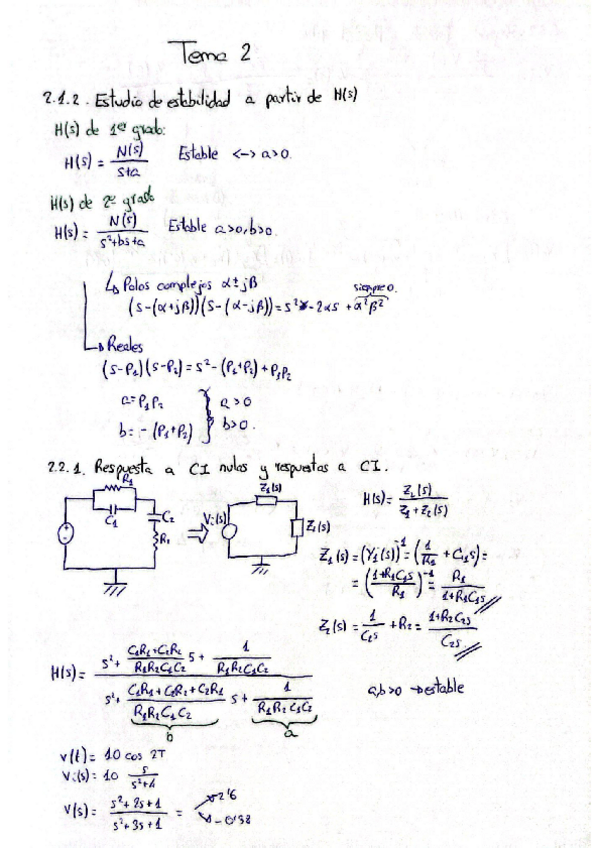 Tema 2
2.1.2. Estudio de estabilidad a partir de H(s)
H(s) de 1er grado:
H(s) = N(s) / s+a   Estable <-> a>0.
H(s) de 2º grado
H(s) = N(s) / s²+bs+a   Estable a>0, b>0.
↳ Polos complejos α±jβ
siempre 0.
(s-(α+jβ))(s-(α-jβ)) = s² - 2αs + α²β²
↳ Reales
(s-P1)(s-P2) = s² - (P1+P2) + P1P2
a = P1P2   a>0
b = -(P1+P2)   b>0.
2.2.1. Respuesta a CI nulas y respuestas a CI.
R1
C1
C2
R2
⇒
Vi(s)
Z1(s)
Z2(s)
H(s) = Z2(s) / Z1+Z2(s)
Z1(s) = (Y1(s))^-1 = (1/R1 + C1s) =
= ((1+R1C1s)/R1)^-1 = R1 / 1+R1C1s
Z2(s) = 1/C2s + R2 = 1+R2C2s / C2s
H(s) = s² + (C1R1+C2R2 / R1R2C1C2) s + 1 / R1R2C1C2
s² + (C1R1+C2R2+C2R1 / R1R2C1C2) s + 1 / R1R2C1C2
b   a
a,b>0 → estable
v(t) = 10 cos 2T
Vi(s) = 10 s / s²+4
V(s) = s²+2s+1 / s²+3s+1 =
-2'6
-0'38